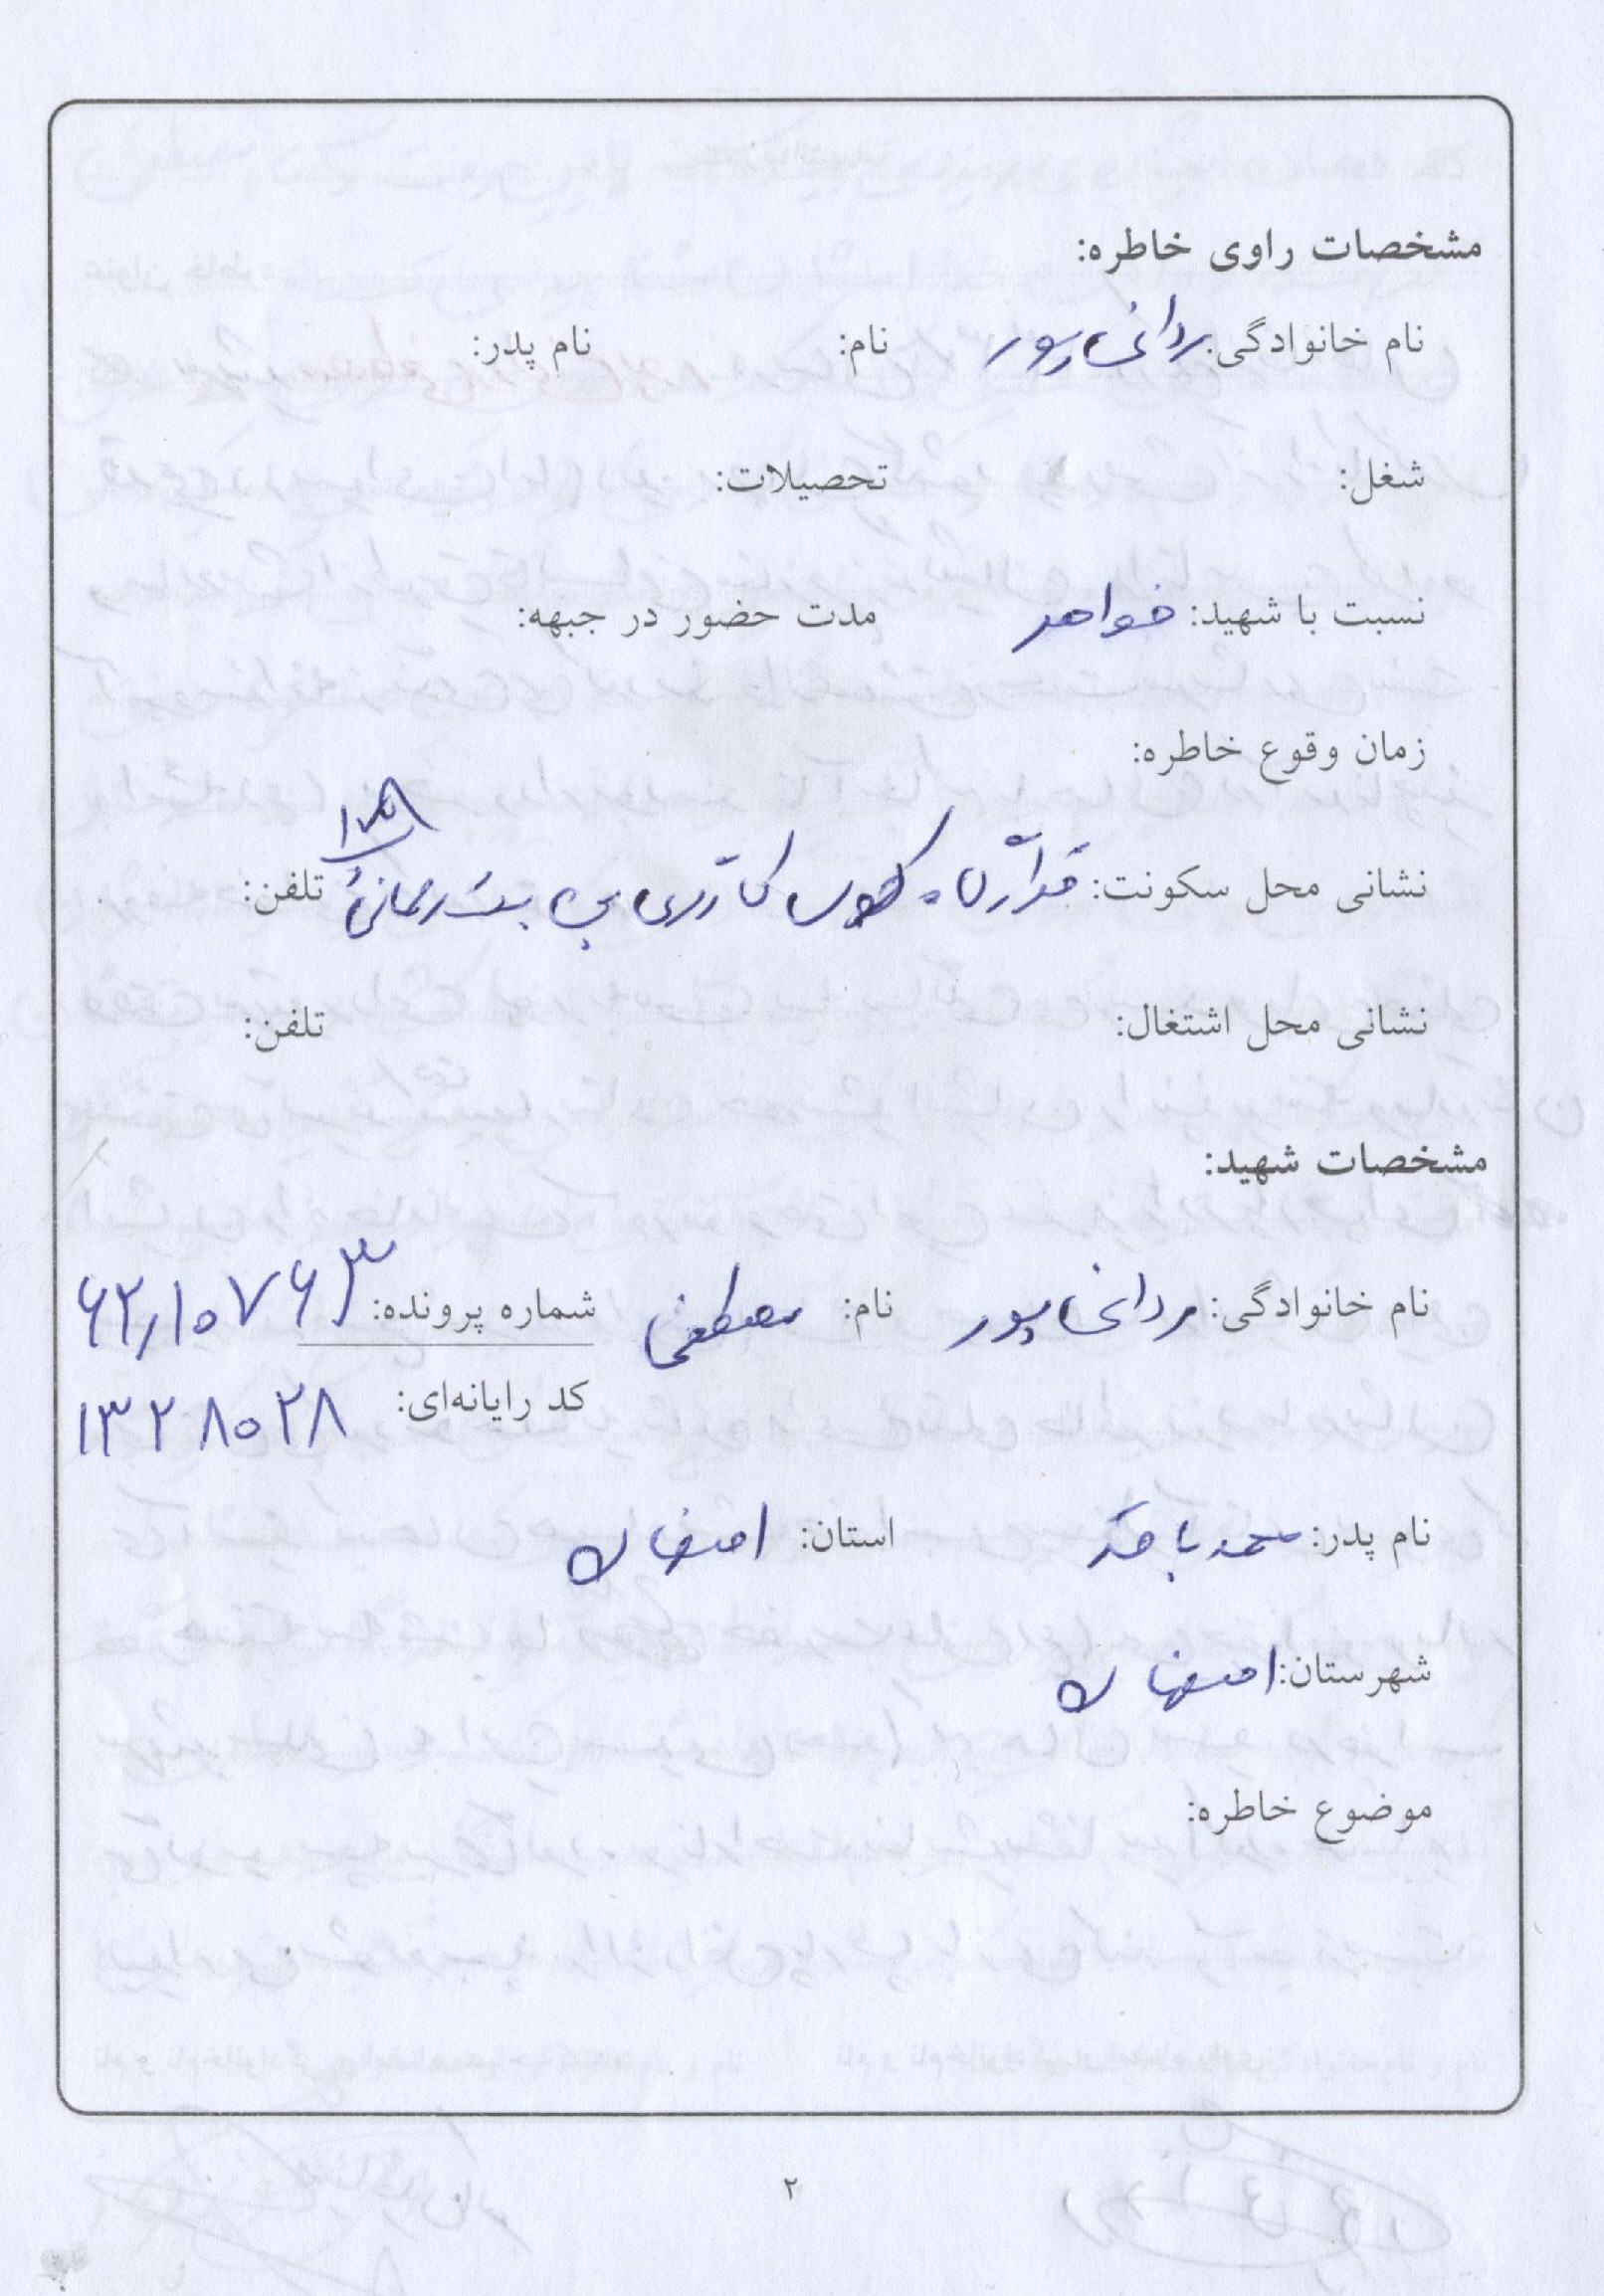 مشخصات راوی خاطره:
نام خانوادگی: ردانی‌پور نام: نام پدر:
شغل: تحصیلات:
نسبت با شهید: خواهر مدت حضور در جبهه:
زمان وقوع خاطره:
نشانی محل سکونت: تلفن:
نشانی محل اشتغال: تلفن:
مشخصات شهید:
نام خانوادگی: ردانی‌پور نام: مصطفی شماره پرونده: ۶۲٫۱۰۷۶۳
کد رایانه‌ای: ۱۳۲۸۰۲۸
نام پدر: محمد باقر استان: اصفهان
شهرستان: اصفهان
موضوع خاطره:
۲